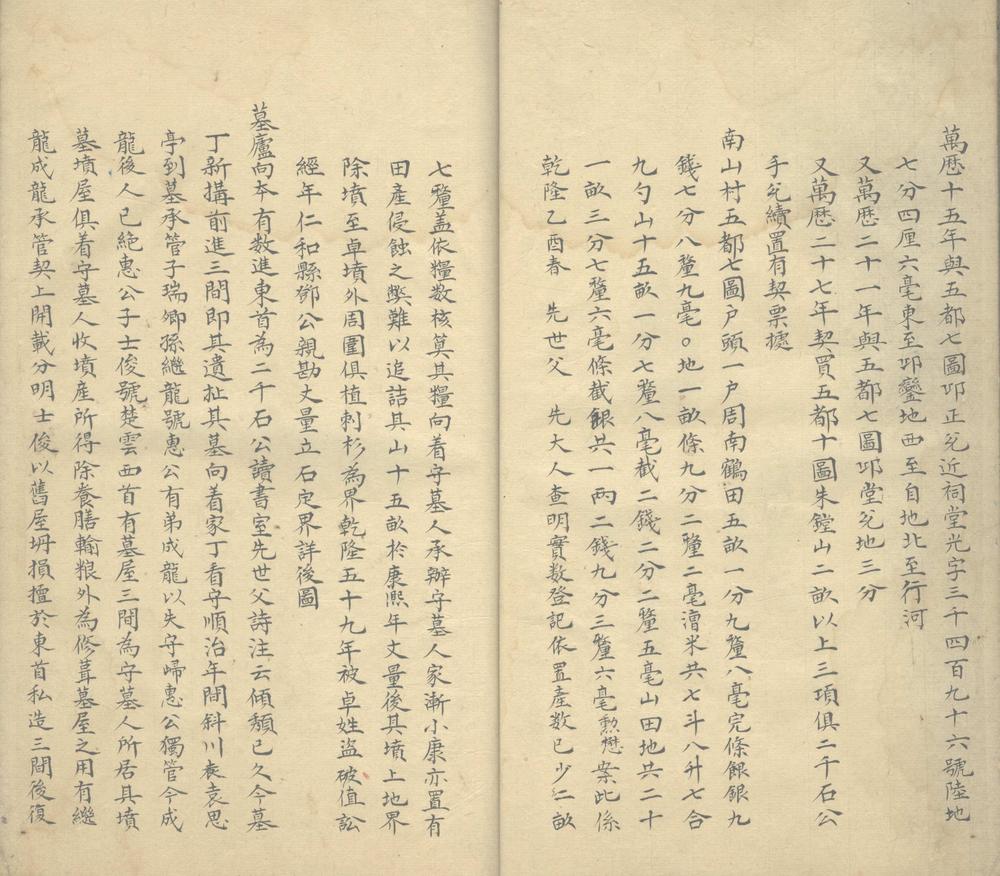 萬歷十五年與五都七圖邛正兌近祠堂光字三千四百九十六號陸地
七分四厘六毫東至邛鑾地西至自地北至行河
又萬歷二十一年與五都七圖邛堂兌地三分
又萬歷二十七年契買五都十圖朱鏜山二畝以上三項俱二千石公
手兌續置有契票據
南山村五都七圖戶頭一戶周南鶴田五畝一分九釐八毫完條餀銀九
錢七分八釐九毫○地一畝條九分二釐二毫漕米共七斗八升七合
九勺山十五畝一分七釐八毫截二錢二分二釐五毫山田地共二十
一畝三分七釐六毫條截銀共一兩二錢九分三釐六毫勲懋案此係
乾隆乙酉春 先世父 先大人查明實数登記依置產数已少二畝
七釐盖依糧数核算其糧向着守墓人承辦守墓人家漸小康亦置有
田產侵蝕之獘難以追詰其山十五畝於康熙年丈量後其墳上地界
除墳至卓墳外周圍俱植刺杉為界乾隆五十九年被卓姓盜破值訟
經年仁和縣鄧公親勘丈量立石定界詳後圖
墓廬向夲有数進東首為二千石公讀書室先世父詩注云傾頹已久今墓
丁新搆前進三間即其遺址其墓向着家丁看守順治年間斜川表袁思
亭到墓承管子瑞卿孫繼龍號惠公有弟成龍以失守歸惠公獨管今成
龍後人已絶惠公子士俊號楚雲西首有墓屋三間為守墓人所居具墳
墓墳屋俱着守墓人收墳產所得除養膳輸粮外為修葺墓屋之用有繼
龍成龍承管契上開載分明士俊以舊屋坍損擅於東首私造三間後復